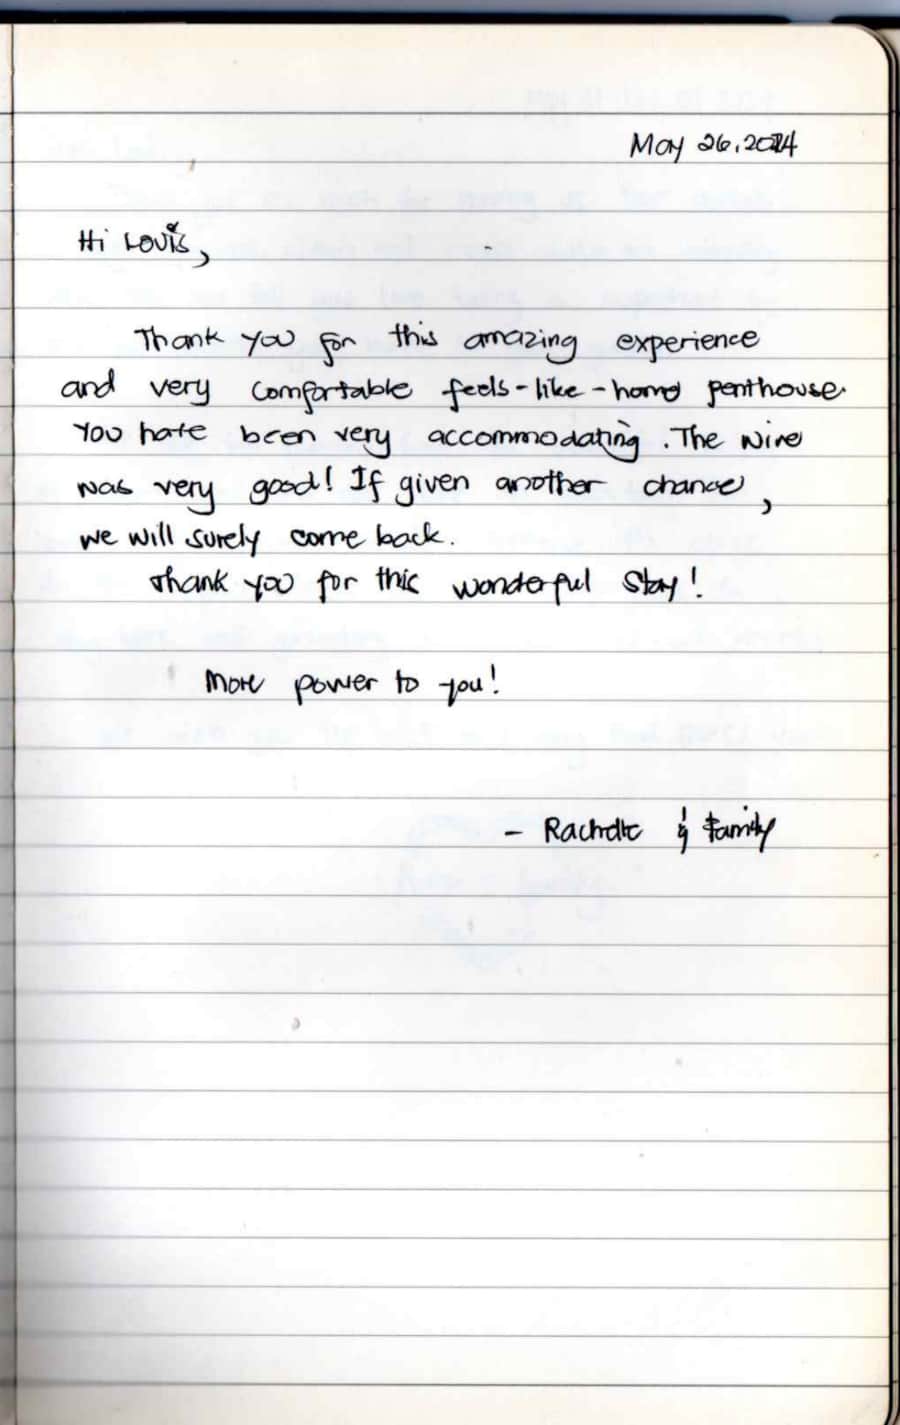 May 26, 2014
Hi Louis,
Thank you for this amazing experience
and very comfortable feels-like-home penthouse.
You have been very accommodating. The wine
was very good! If given another chance,
we will surely come back.
Thank you for this wonderful stay!
More power to you!
- Rachelle & family